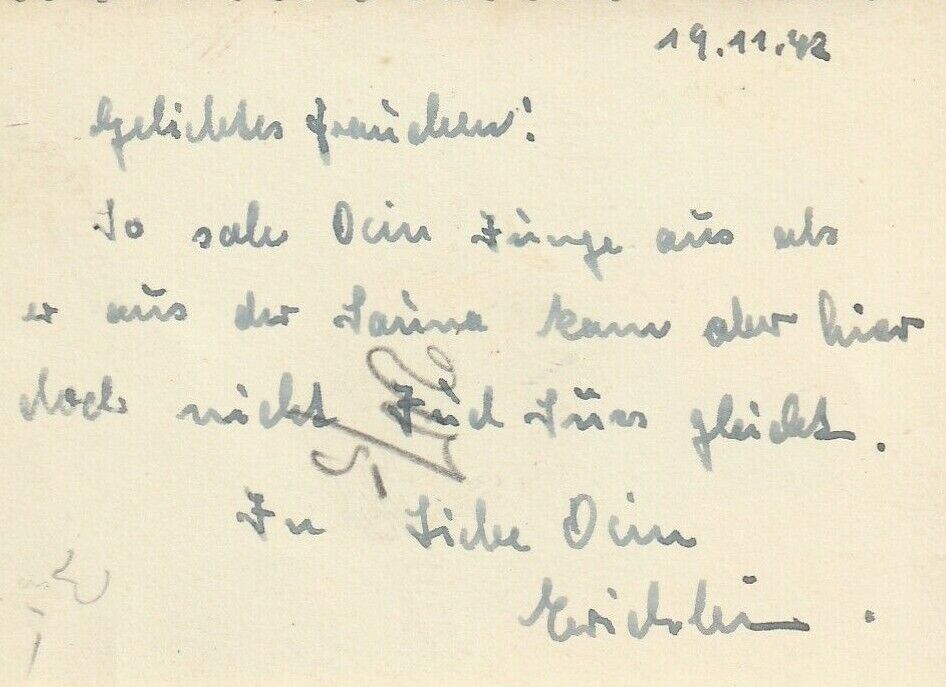 19.11.42
Geliebtes Frauchen!
So sah Dein Junge aus als
er aus der Sauna kam aber hier
doch nicht Jud Süss gleicht.
In Liebe Dein
Erichlein.